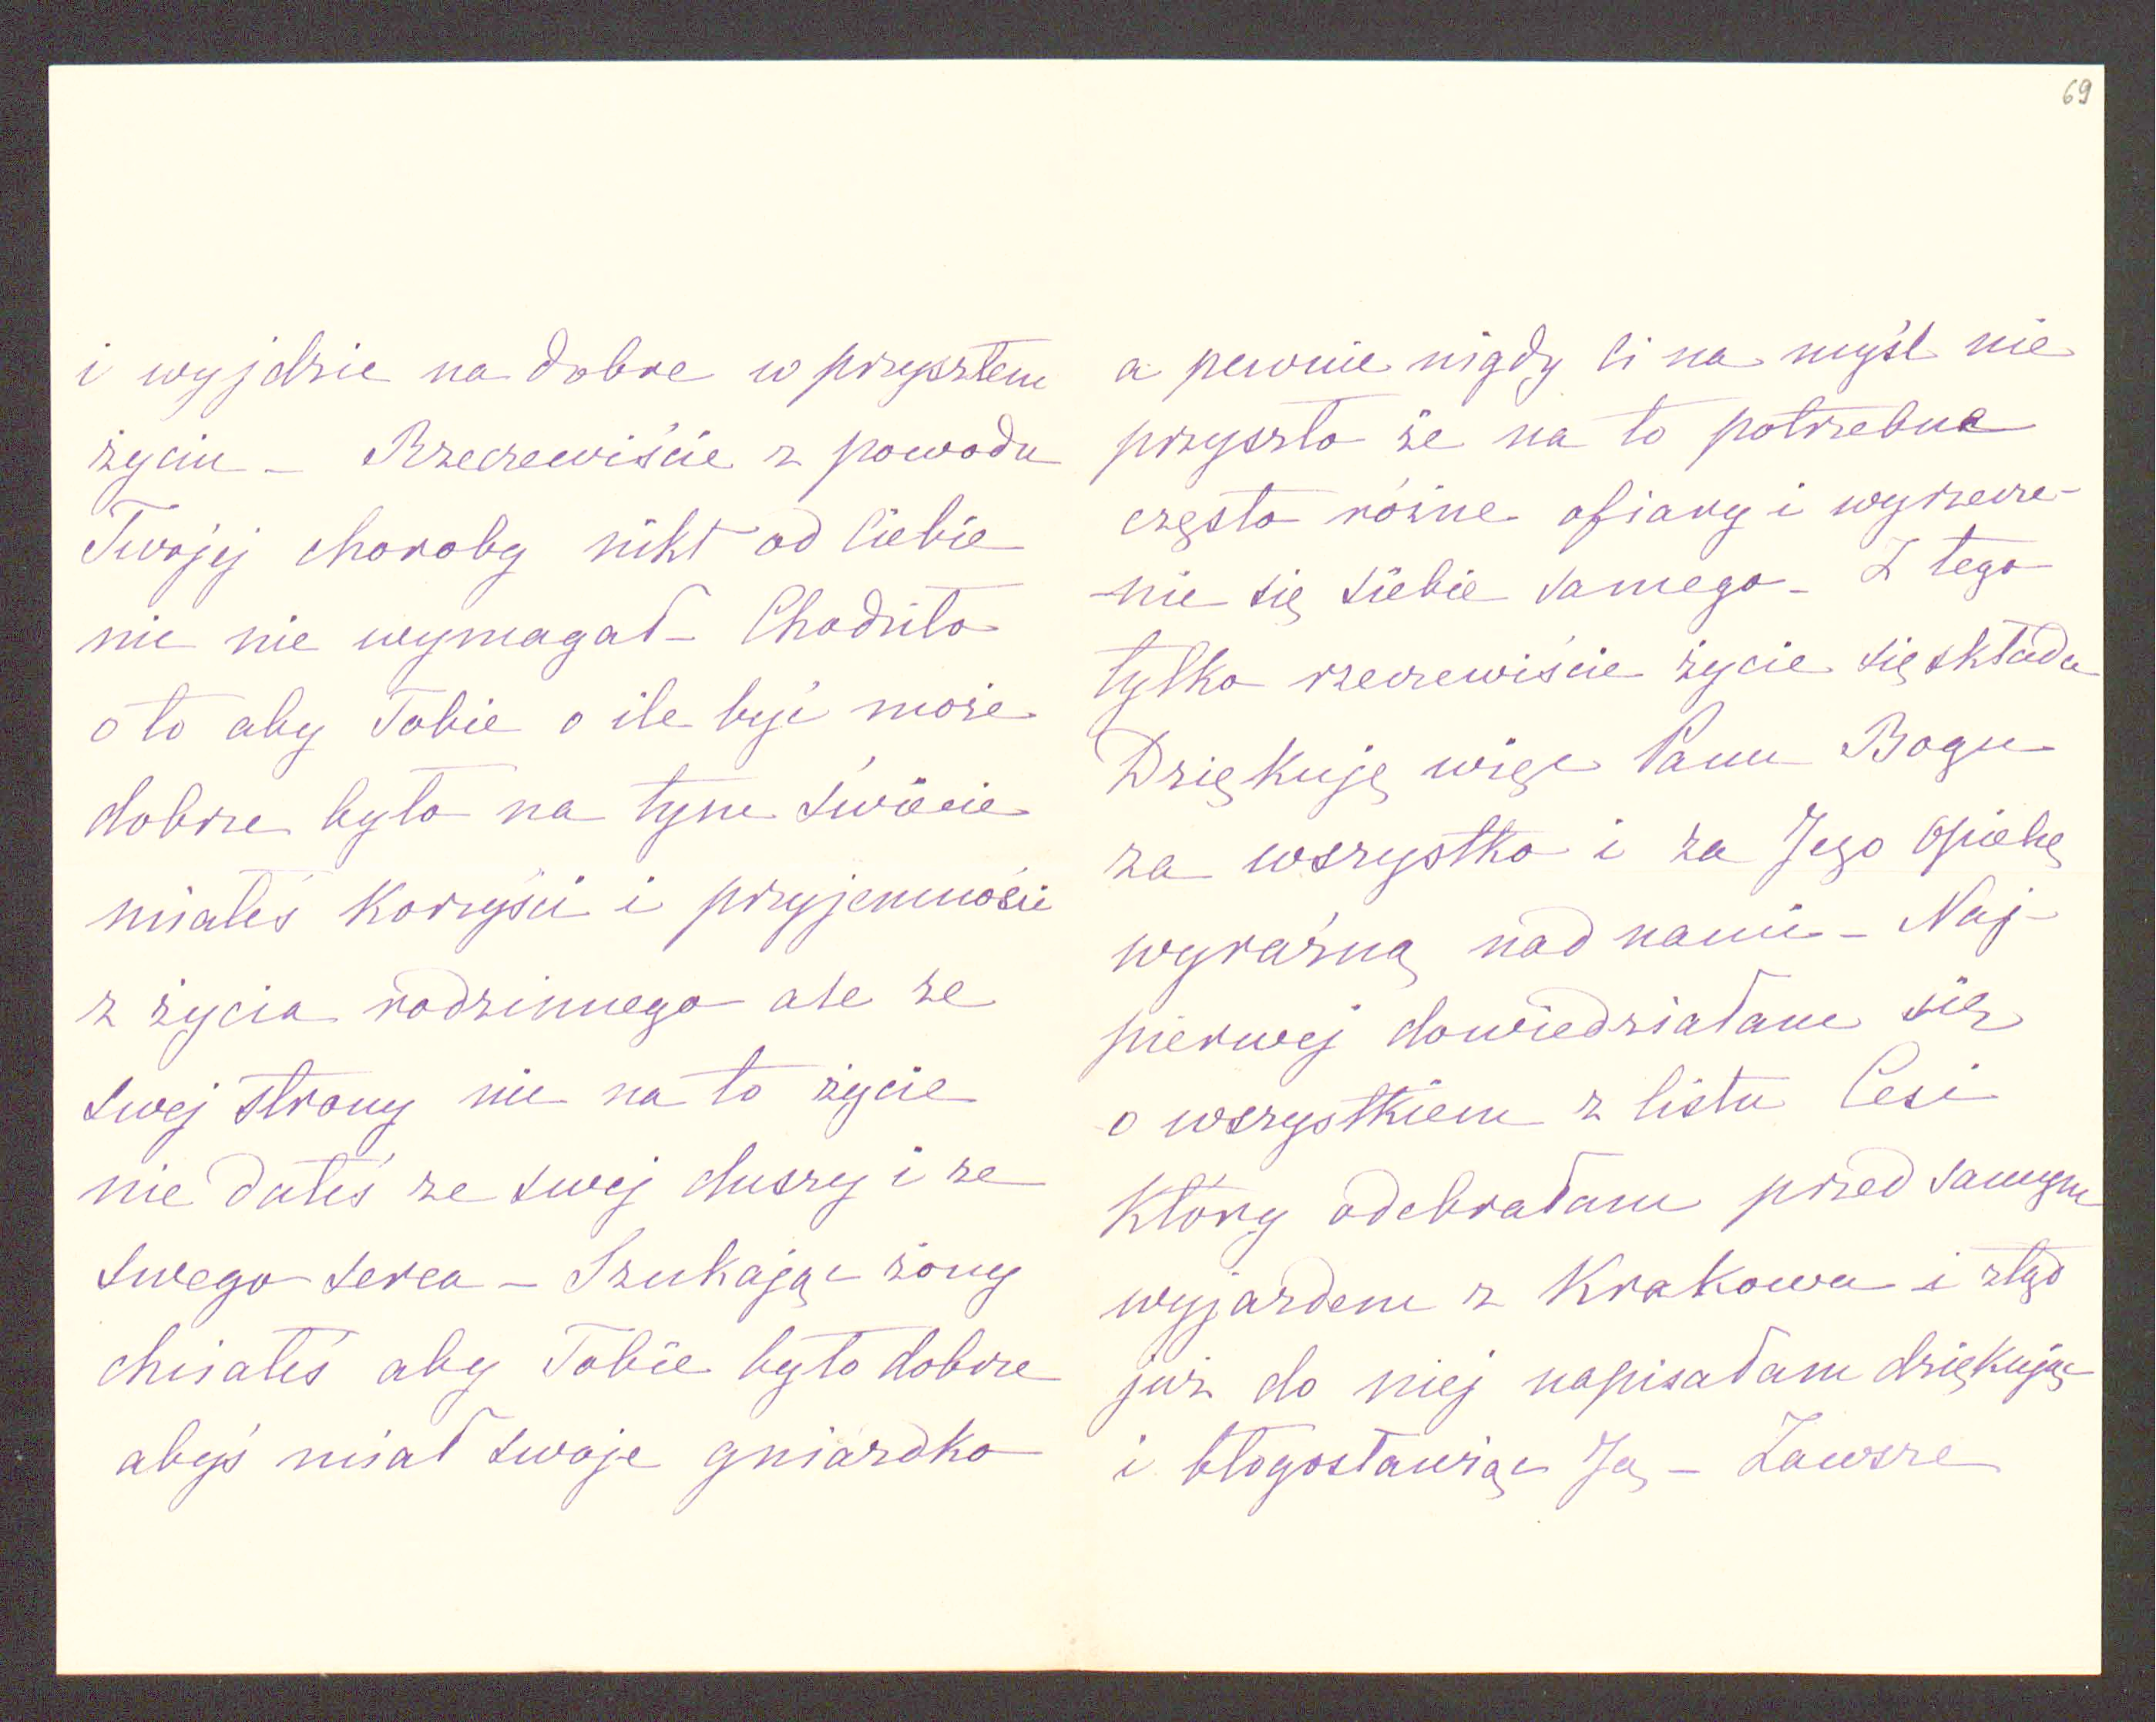 69
i wyjdzie na dobre w przyszłem
życiu – Rzeczewiście z powodu
Twojej choroby nikt od Ciebie
nic nie wymagał – Chodziło
o to aby Tobie o ile być może
dobrze było na tym świecie
miałeś korzyści i przyjemności
z życia rodzinnego ale ze
swej strony nic na to życie
nie dałeś ze swej duszy i ze
swego serca – Szukając żony
chciałeś aby Tobie było dobrze
abyś miał swoje gniazdko
a pewnie nigdy Ci na myśl nie
przyszło że na to potrzebne
często różne ofiary i wyrzecze-
-nie się siebie samego – Z tego
tylko rzeczewiście życie się składa
Dziękuję więc Panu Bogu
za wszystko i za Jego opiekę
wyraźną nad nami – Naj-
pierwej dowiedziałam się
o wszystkiem z listu Cesi
który odebrałam przed samym
wyjazdem z Krakowa i ztąd
już do niej napisałam dziękując
i błogosławiąc Ją – Zawsze